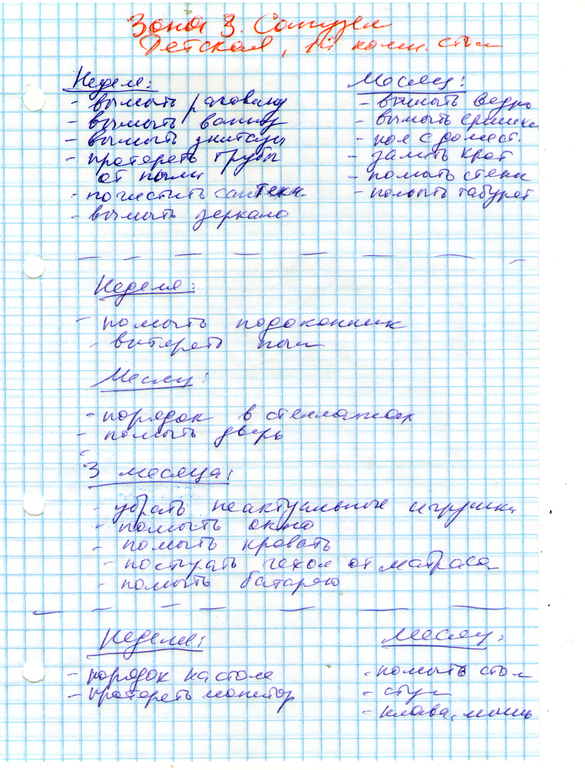 Зона 3. Санузел
Детская, комп. стол
Неделя:
- вымыть раковину
- вымыть ванну
- вымыть унитазы
- протереть трубы
от пыли
- почистить сантехн
- вымыть зеркало
Месяц:
- вымыть ведро
- вымыть ёршики
- пол с домест.
- залить крот
- помыть стены
- помыть табурет
Неделя:
- помыть подоконник
- вытереть пыль
Месяц:
- порядок в стеллажах
- помыть дверь
3 месяца:
- убрать неактуальные игрушки
- помыть окно
- помыть кровать
- постирать чехол от матраса
- помыть батарею
Неделя:
- порядок на столе
- протереть монитор
Месяц:
- помыть стол
- стул
- клава, мышь